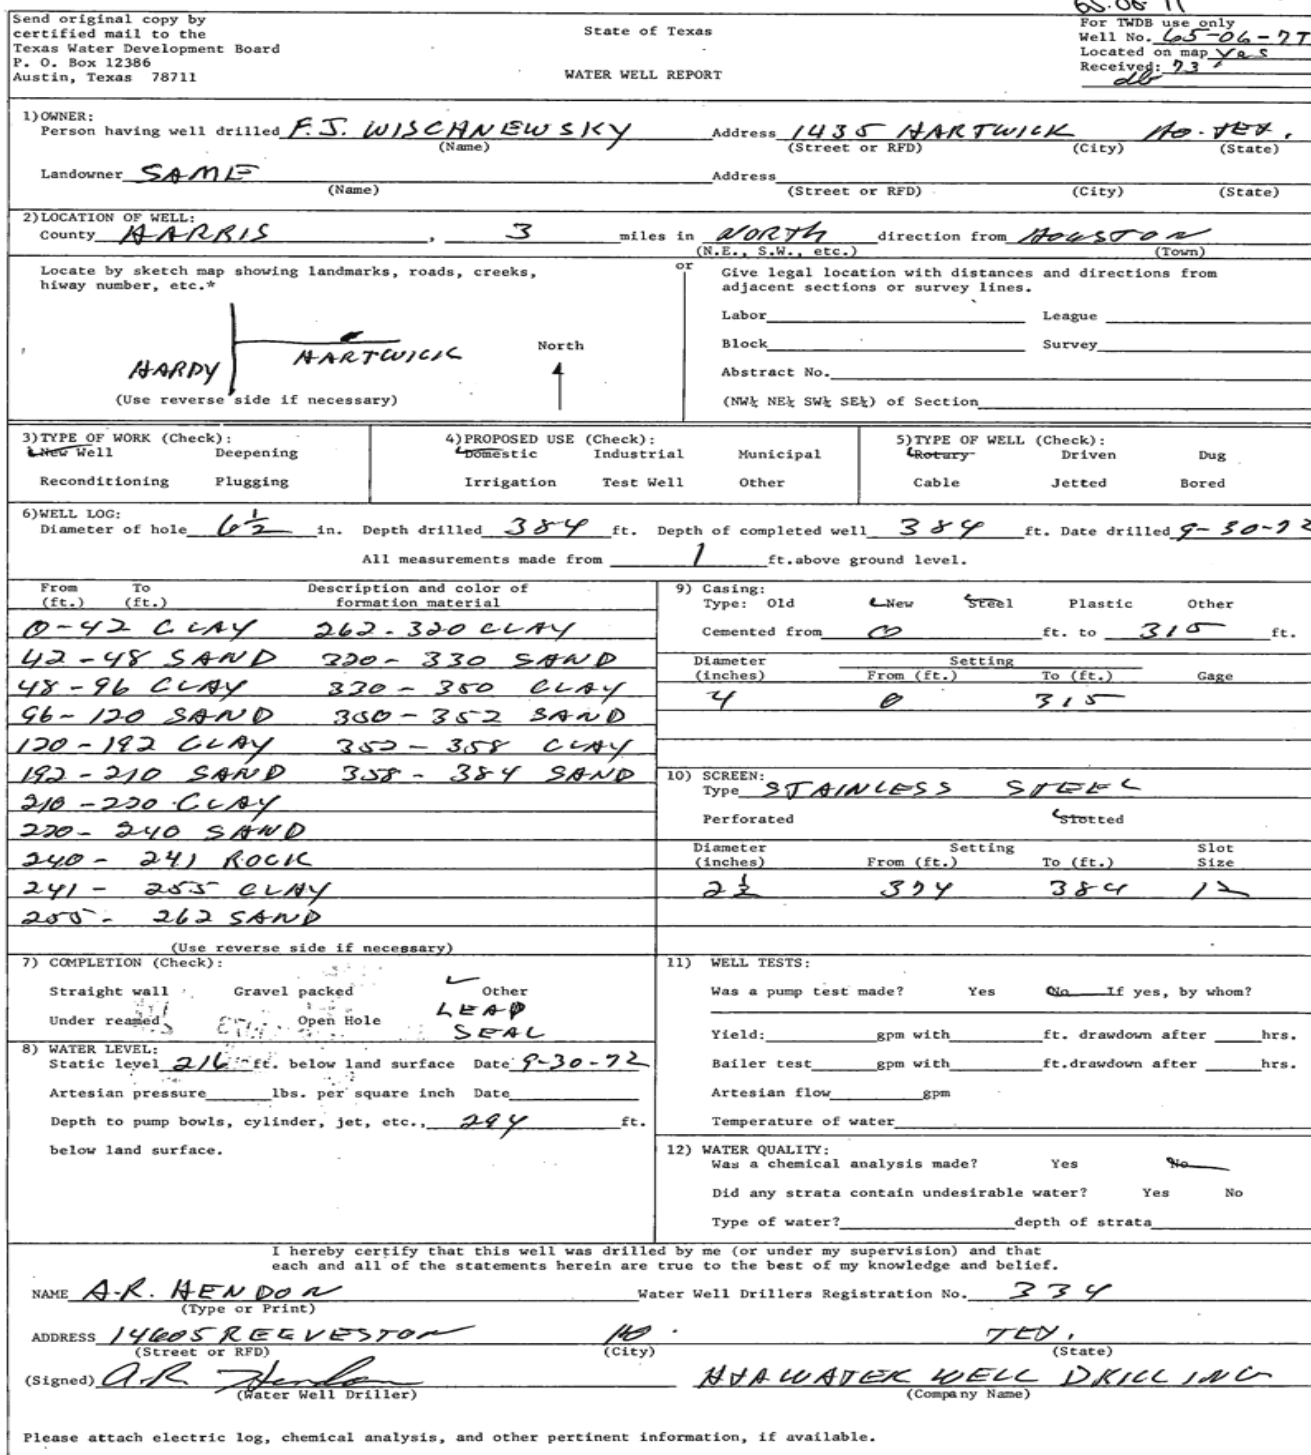 65-06-7T
Send original copy by
certified mail to the
Texas Water Development Board
P. O. Box 12386
Austin, Texas 78711
State of Texas
WATER WELL REPORT
For TWDB use only
Well No. 65-06-7T
Located on map Yes
Received: 73
db
1) OWNER:
Person having well drilled F.J. WISCHNEWSKY Address 1435 HARTWICK HO. TEX.
(Name) (Street or RFD) (City) (State)
Landowner SAME Address
(Name) (Street or RFD) (City) (State)
2) LOCATION OF WELL:
County HARRIS, 3 miles in NORTH direction from HOUSTON
(N.E., S.W., etc.) (Town)
Locate by sketch map showing landmarks, roads, creeks,
hiway number, etc.*
HARDY HARTWICK North
(Use reverse side if necessary)
or
Give legal location with distances and directions from
adjacent sections or survey lines.
Labor League
Block Survey
Abstract No.
(NW¼ NE¼ SW¼ SE¼) of Section
3) TYPE OF WORK (Check):
New Well Deepening
Reconditioning Plugging
4) PROPOSED USE (Check):
Domestic Industrial Municipal
Irrigation Test Well Other
5) TYPE OF WELL (Check):
Rotary Driven Dug
Cable Jetted Bored
6) WELL LOG:
Diameter of hole 6½ in. Depth drilled 384 ft. Depth of completed well 384 ft. Date drilled 9-30-72
All measurements made from 1 ft. above ground level.
From To Description and color of
(ft.) (ft.) formation material
0-42 CLAY 262-320 CLAY
42-48 SAND 320-330 SAND
48-96 CLAY 330-350 CLAY
96-120 SAND 350-352 SAND
120-192 CLAY 352-358 CLAY
192-210 SAND 358-384 SAND
210-220 CLAY
220-240 SAND
240-241 ROCK
241-255 CLAY
255-262 SAND
(Use reverse side if necessary)
9) Casing:
Type: Old New Steel Plastic Other
Cemented from 0 ft. to 315 ft.
Diameter Setting
(inches) From (ft.) To (ft.) Gage
4 0 315
10) SCREEN:
Type STAINLESS STEEL
Perforated Slotted
Diameter Setting Slot
(inches) From (ft.) To (ft.) Size
2½ 374 384 12
7) COMPLETION (Check):
Straight wall Gravel packed Other
Under reamed Open Hole LEAD
SEAL
8) WATER LEVEL:
Static level 216 ft. below land surface Date 9-30-72
Artesian pressure lbs. per square inch Date
Depth to pump bowls, cylinder, jet, etc., 294 ft.
below land surface.
11) WELL TESTS:
Was a pump test made? Yes No If yes, by whom?
Yield: gpm with ft. drawdown after hrs.
Bailer test gpm with ft.drawdown after hrs.
Artesian flow gpm
Temperature of water
12) WATER QUALITY:
Was a chemical analysis made? Yes No
Did any strata contain undesirable water? Yes No
Type of water? depth of strata
I hereby certify that this well was drilled by me (or under my supervision) and that
each and all of the statements herein are true to the best of my knowledge and belief.
NAME A.R. HENDON Water Well Drillers Registration No. 334
(Type or Print)
ADDRESS 14605 REEVESTON HO. TEX.
(Street or RFD) (City) (State)
(Signed) A.R. Hendon WATER WELL DRILLING
(Water Well Driller) (Company Name)
Please attach electric log, chemical analysis, and other pertinent information, if available.